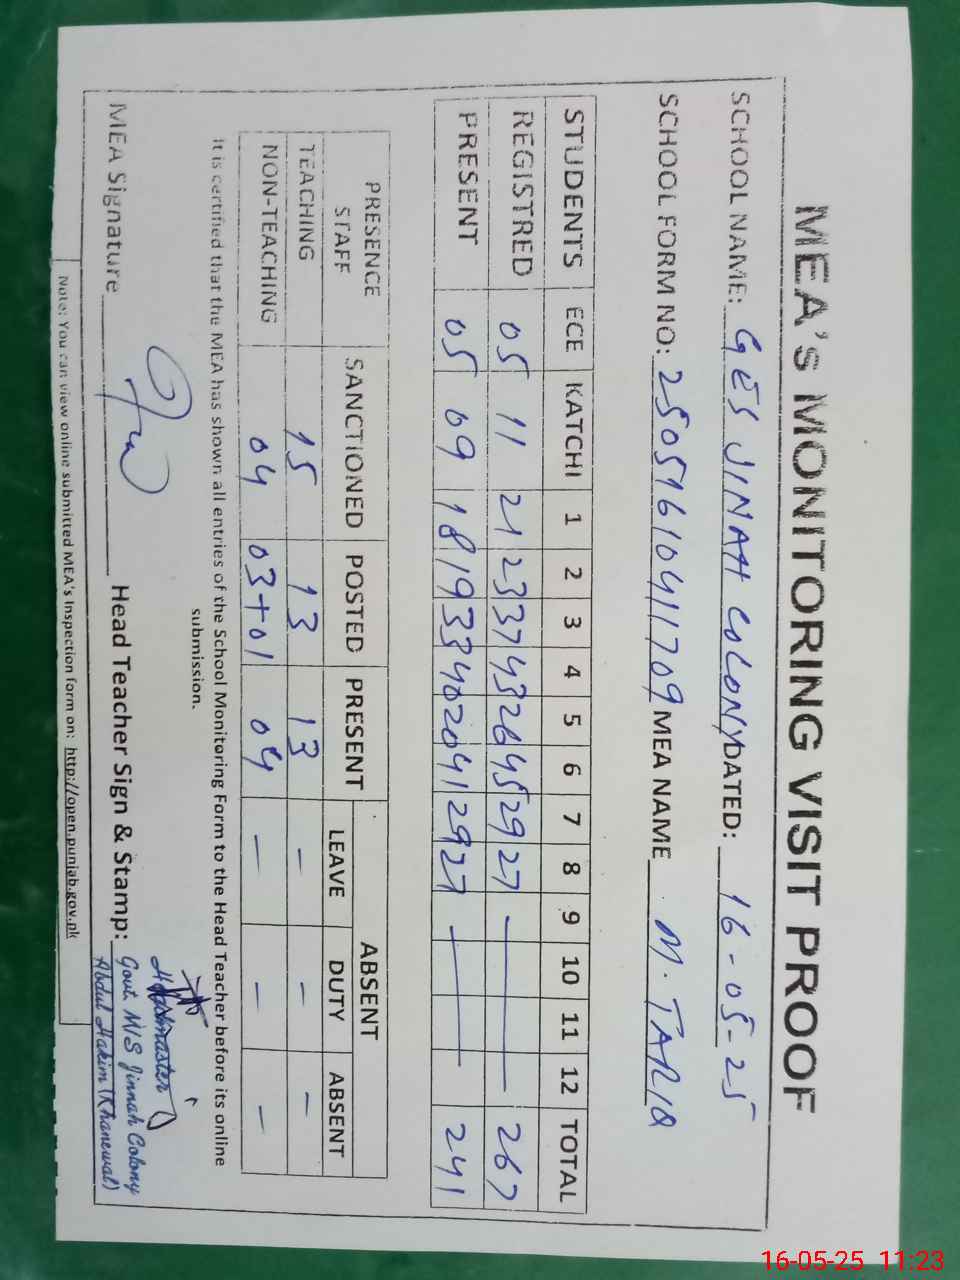 MEA's MONITORING VISIT PROOF
SCHOOL NAME: GES JINAH COLONY DATED: 16-05-25
SCHOOL FORM NO: 25051610411709 MEA NAME M. TARIQ
STUDENTS ECE KATCHI 1 2 3 4 5 6 7 8 9 10 11 12 TOTAL
REGISTRED 05 11 21 23 37 43 26 45 29 27 — 267
PRESENT 05 09 18 19 33 40 20 41 29 27 — 241
PRESENCE STAFF SANCTIONED POSTED PRESENT ABSENT
LEAVE DUTY ABSENT
TEACHING 15 13 13 – – –
NON-TEACHING 04 03+01 04 – – –
It is certified that the MEA has shown all entries of the School Monitoring Form to the Head Teacher before its online
submission.
MEA Signature Head Teacher Sign & Stamp:
Headmaster
Govt. M/S Jinnah Colony
Abdul Hakim (Khanewal)
Note: You can view online submitted MEA's Inspection form on: http://open.punjab.gov.pk
16-05-25 11:23